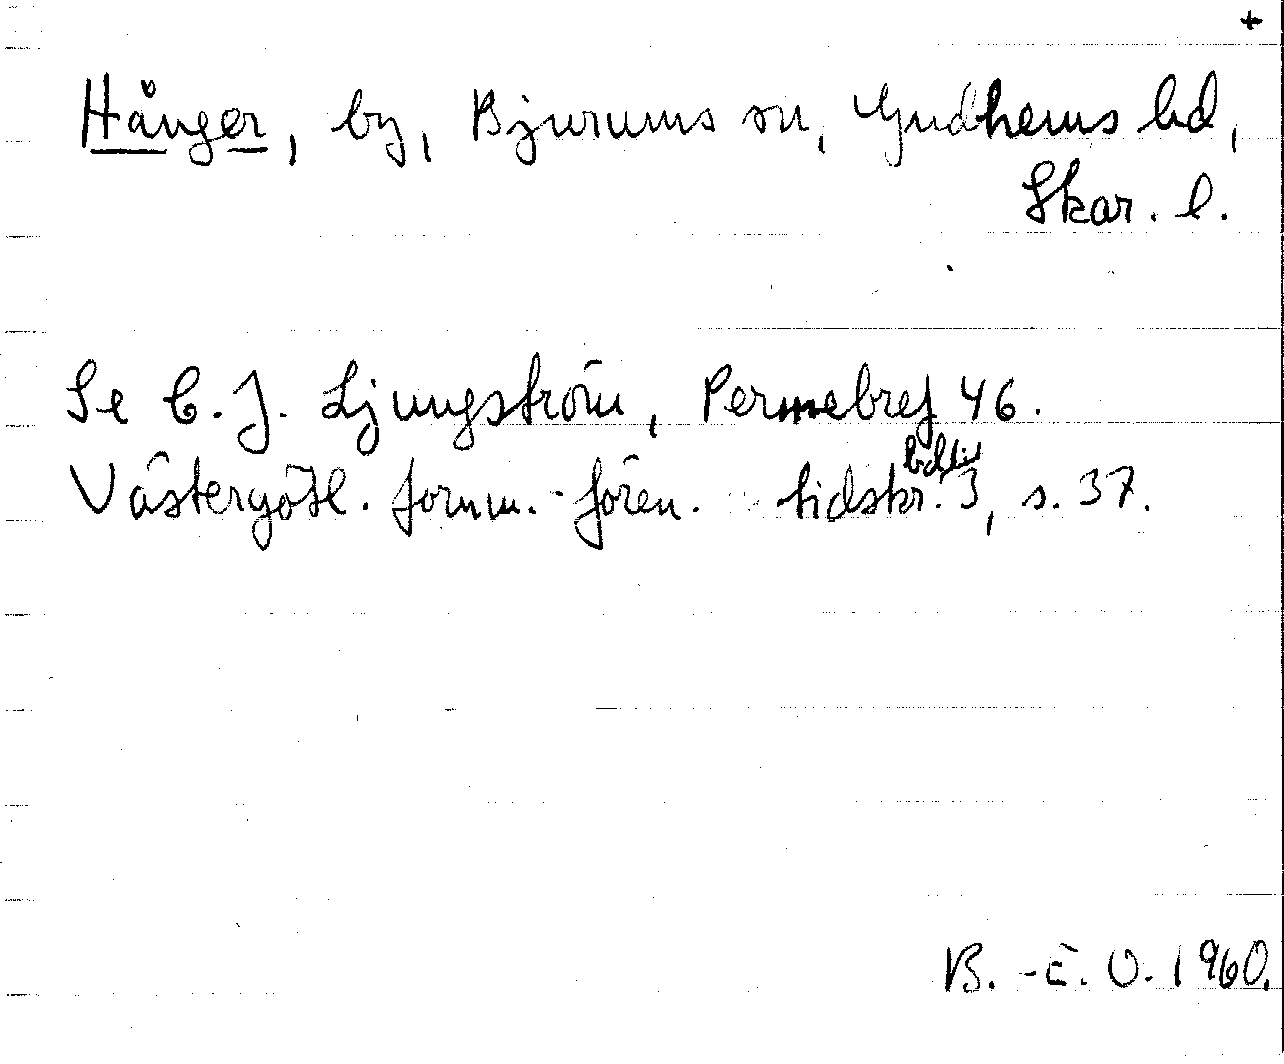 +
Hånger, by, Bjurums sn, Gudhems hd,
Skar. l.
Se C. J. Ljungström, Permebref 46.
Västergötl. fornm.-fören. tidskr. 3, s. 37.
B.-E. O. 1960.